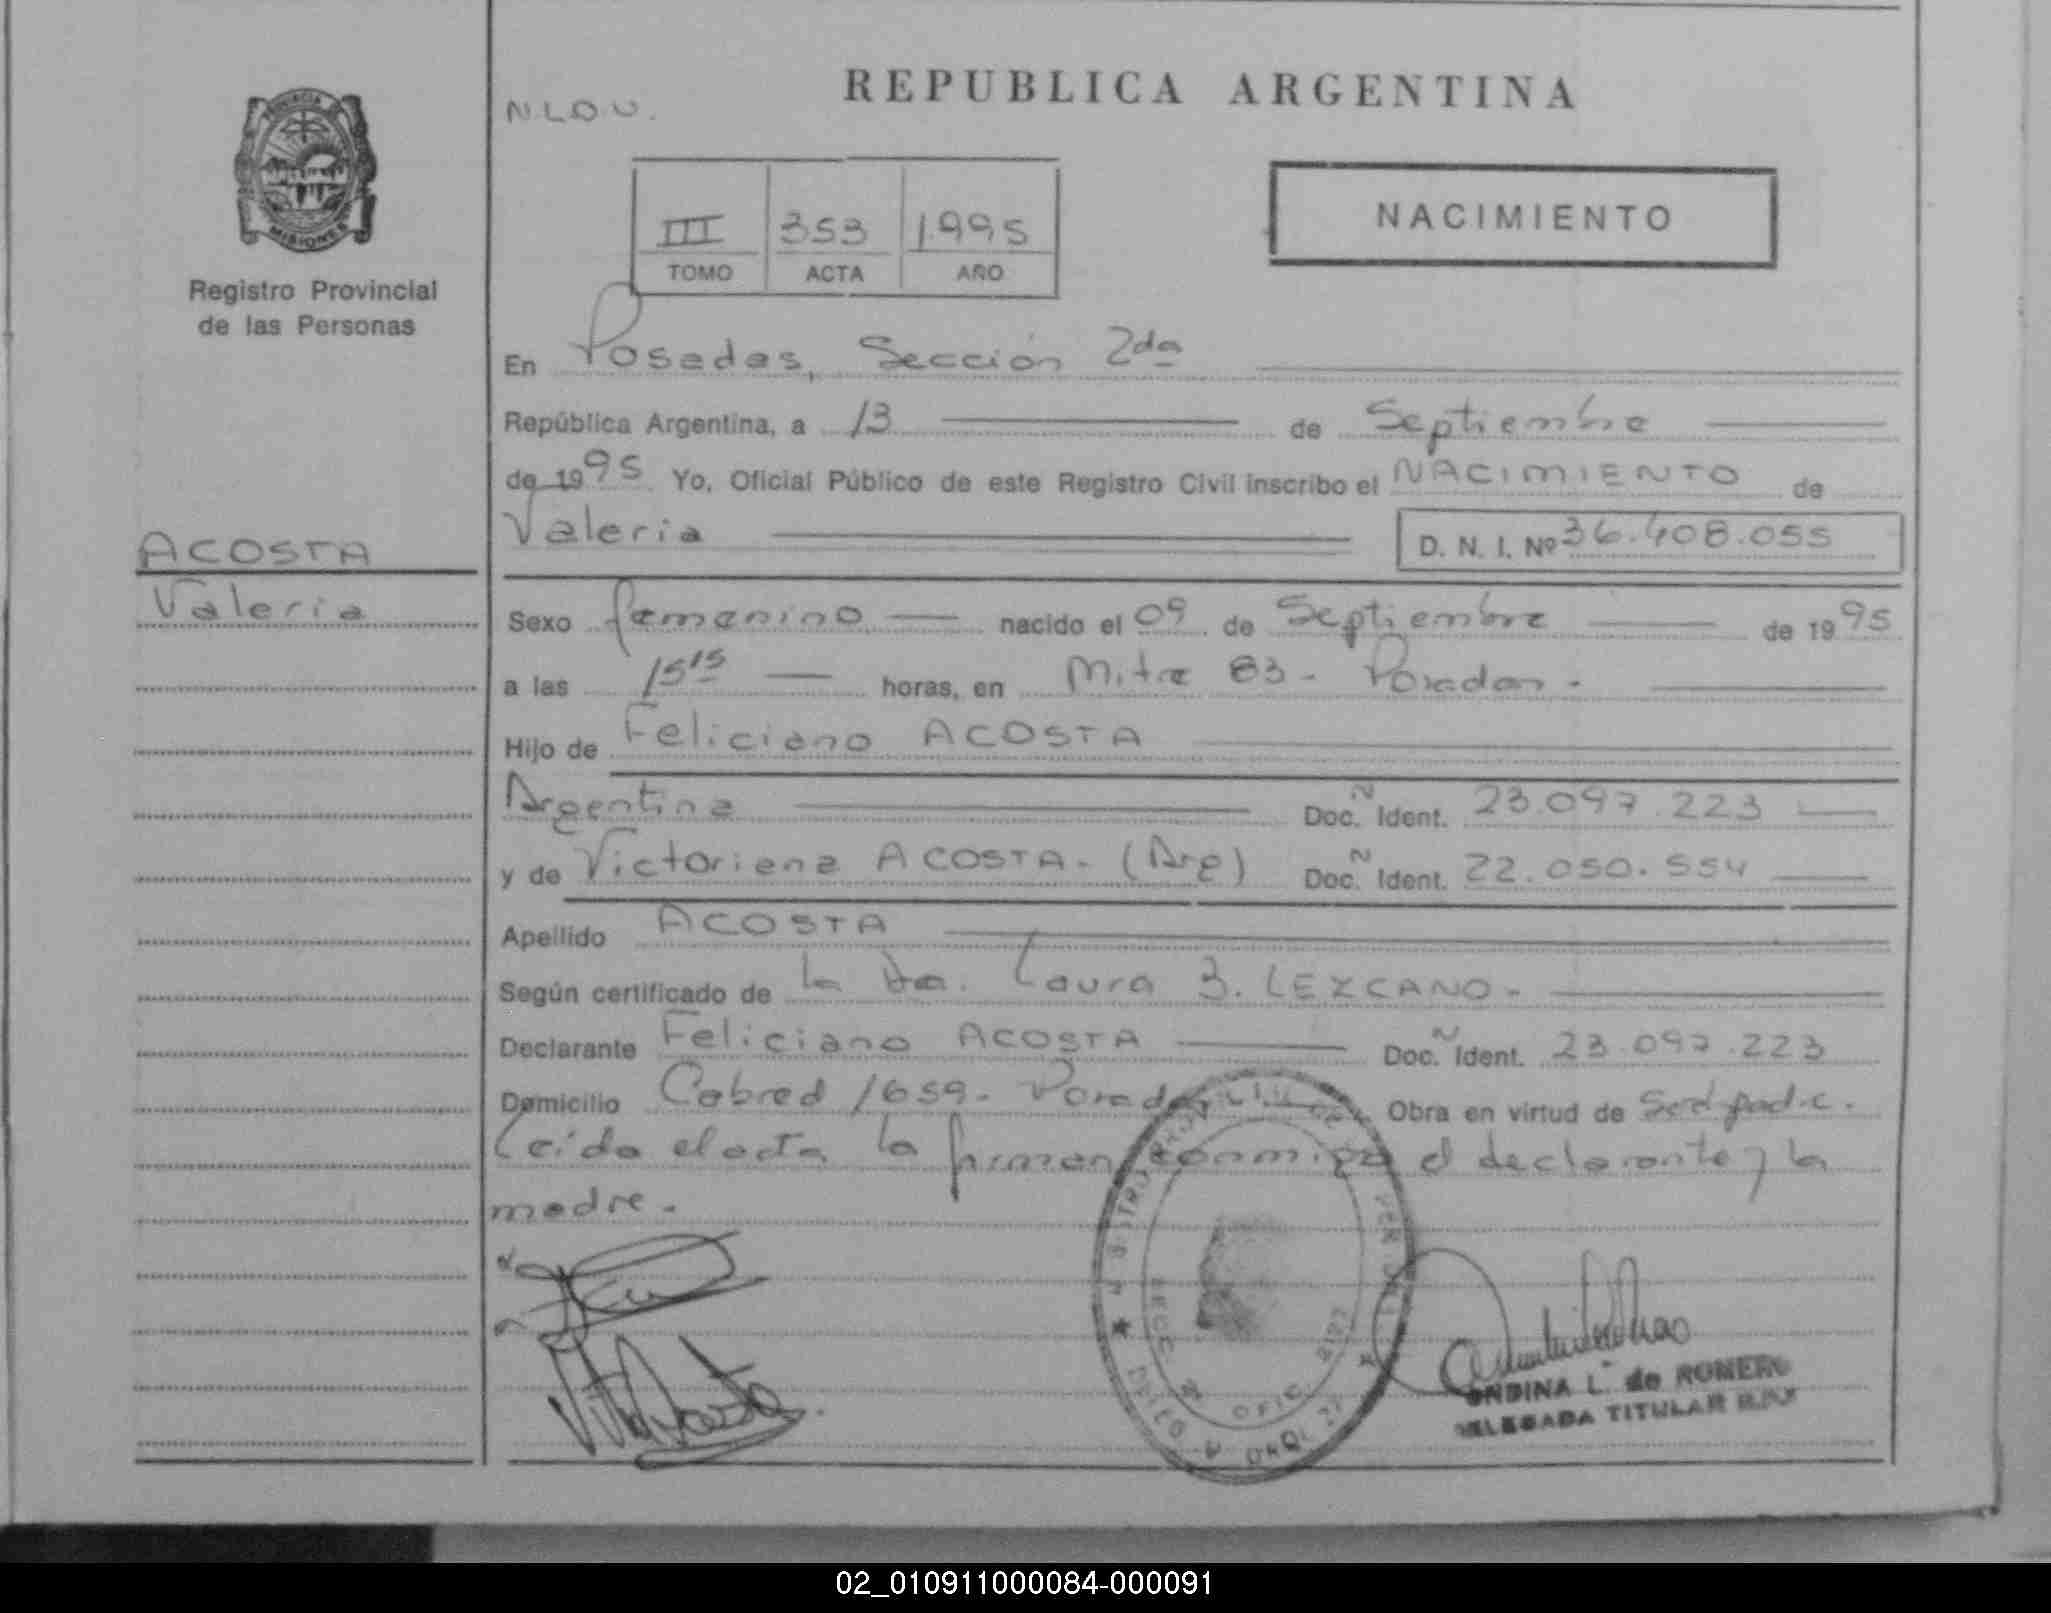 REPUBLICA ARGENTINA
N.L.O.U.
III 353 1995
TOMO ACTA AÑO
NACIMIENTO
PROVINCIA DE
MISIONES
Registro Provincial
de las Personas
En Posadas, Sección 2da
República Argentina, a 13 de Septiembre
de 1995 Yo, Oficial Público de este Registro Civil inscribo el NACIMIENTO de
Valeria D. N. I. Nº 36.408.055
ACOSTA
Valeria
Sexo femenino nacido el 09 de Septiembre de 1995
a las 15 15 horas, en Mitre 83 - Posadas -
Hijo de Feliciano ACOSTA
Argentina Doc. Ident. 23.097.223
y de Victoriana ACOSTA - (Arg) Doc. Ident. 22.050.554
Apellido ACOSTA
Según certificado de la Dra. Laura B. LEZCANO -
Declarante Feliciano ACOSTA Doc. Ident. 23.097.223
Domicilio Cabred 1659 - Posadas Obra en virtud de
Leída el acta la firman conmigo el declarante y la
madre -
ONDINA L. de ROMERO
DELEGADA TITULAR
02_010911000084-000091